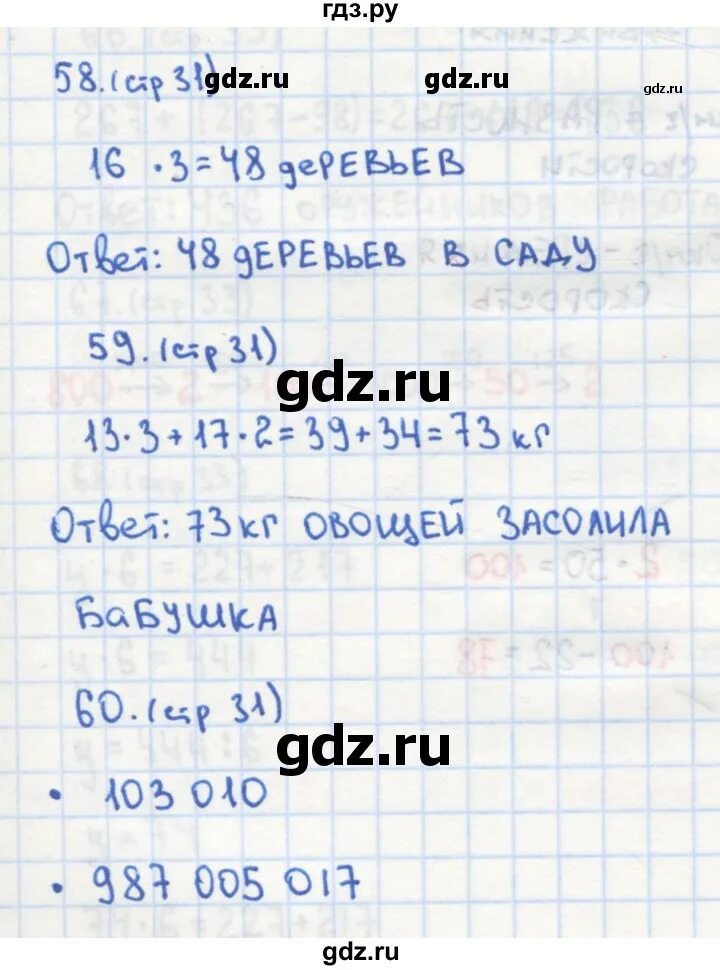 гдз.ру
58. (стр 31)
gdz.ru gdz.ru gdz.ru
16 · 3 = 48 деревьев
Ответ: 48 деревьев в саду
59. (стр 31)
gdz.ru
13·3 + 17·2 = 39 + 34 = 73 кг
Ответ: 73 кг овощей засолила
бабушка
60. (стр 31)
gdz.ru
· 103 010
· 987 005 017
gdz.ru